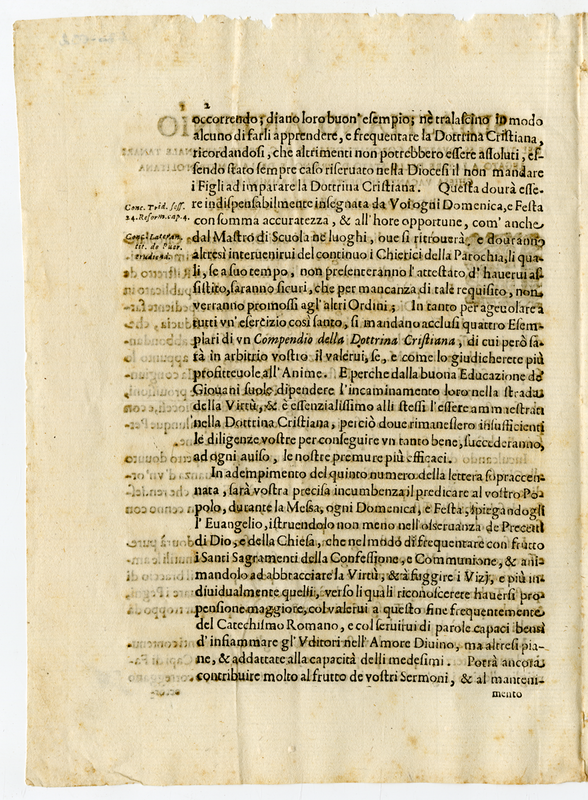 2
occorrendo; diano loro buon' esempio; nè tralascino in modo
alcuno di farli apprendere, e frequentare la Dottrina Cristiana,
ricordandosi, che altrimenti non potrebbero essere assoluti, es-
sendo stato sempre caso riseruato nella Diocesi il non mandare
i Figli ad imparare la Dottrina Cristiana. Questa dourà esse-
Conc. Trid. sess.
24. Reform. cap. 4.
re indispensabilmente insegnata da Voi ogni Domenica, e Festa
con somma accuratezza, & all' hore opportune, com' anche
Conc. Lateran.
tit. de Puer.
erudiend.
dal Mastro di Scuola ne luoghi, oue si ritrouerà, e douranno
altresì interuenirui del continuo i Chierici della Parochia, li qua-
li, se a suo tempo, non presenteranno l'attestato d' hauerui as-
sistito, saranno sicuri, che per mancanza di tale requisito, non
verranno promossi agl' altri Ordini; In tanto per ageuolare a
tutti vn' esercizio così santo, si mandano acclusi quattro Esem-
plari di vn Compendio della Dottrina Cristiana, di cui però sa-
rà in arbitrio vostro il valerui, se, e come lo giudicherete più
profitteuole all' Anime. E perche dalla buona Educazione de'
Giouani suole dipendere l' incaminamento loro nella strada
della Virtù, & è essenzialissimo alli stessi l' essere ammaestrati
nella Dottrina Cristiana, perciò doue rimanessero insufficienti
le diligenze vostre per conseguire vn tanto bene, succederanno,
ad ogni auiso, le nostre premure più efficaci.
In adempimento del quinto numero della lettera sopraccen-
nata, sarà vostra precisa incumbenza il predicare al vostro Po-
polo, durante la Messa, ogni Domenica, e Festa, spiegandogli
l' Euangelio, istruendolo non meno nell' osseruanza de Precetti
di Dio, e della Chiesa, che nel modo di frequentare con frutto
i Santi Sagramenti della Confessione, e Communione, & ani-
mandolo ad abbracciare la Virtù, & à fuggire i Vizj, e più in-
diuidualmente quelli, verso li quali riconoscerete hauersi pro-
pensione maggiore, col valerui a questo fine frequentemente
del Catechismo Romano, e col seruirui di parole capaci bensì
d' infiammare gl' Vditori nell' Amore Diuino, ma altresì pia-
ne, & addattate alla capacità delli medesimi. Potrà ancora
contribuire molto al frutto de vostri Sermoni, & al manteni-
mento